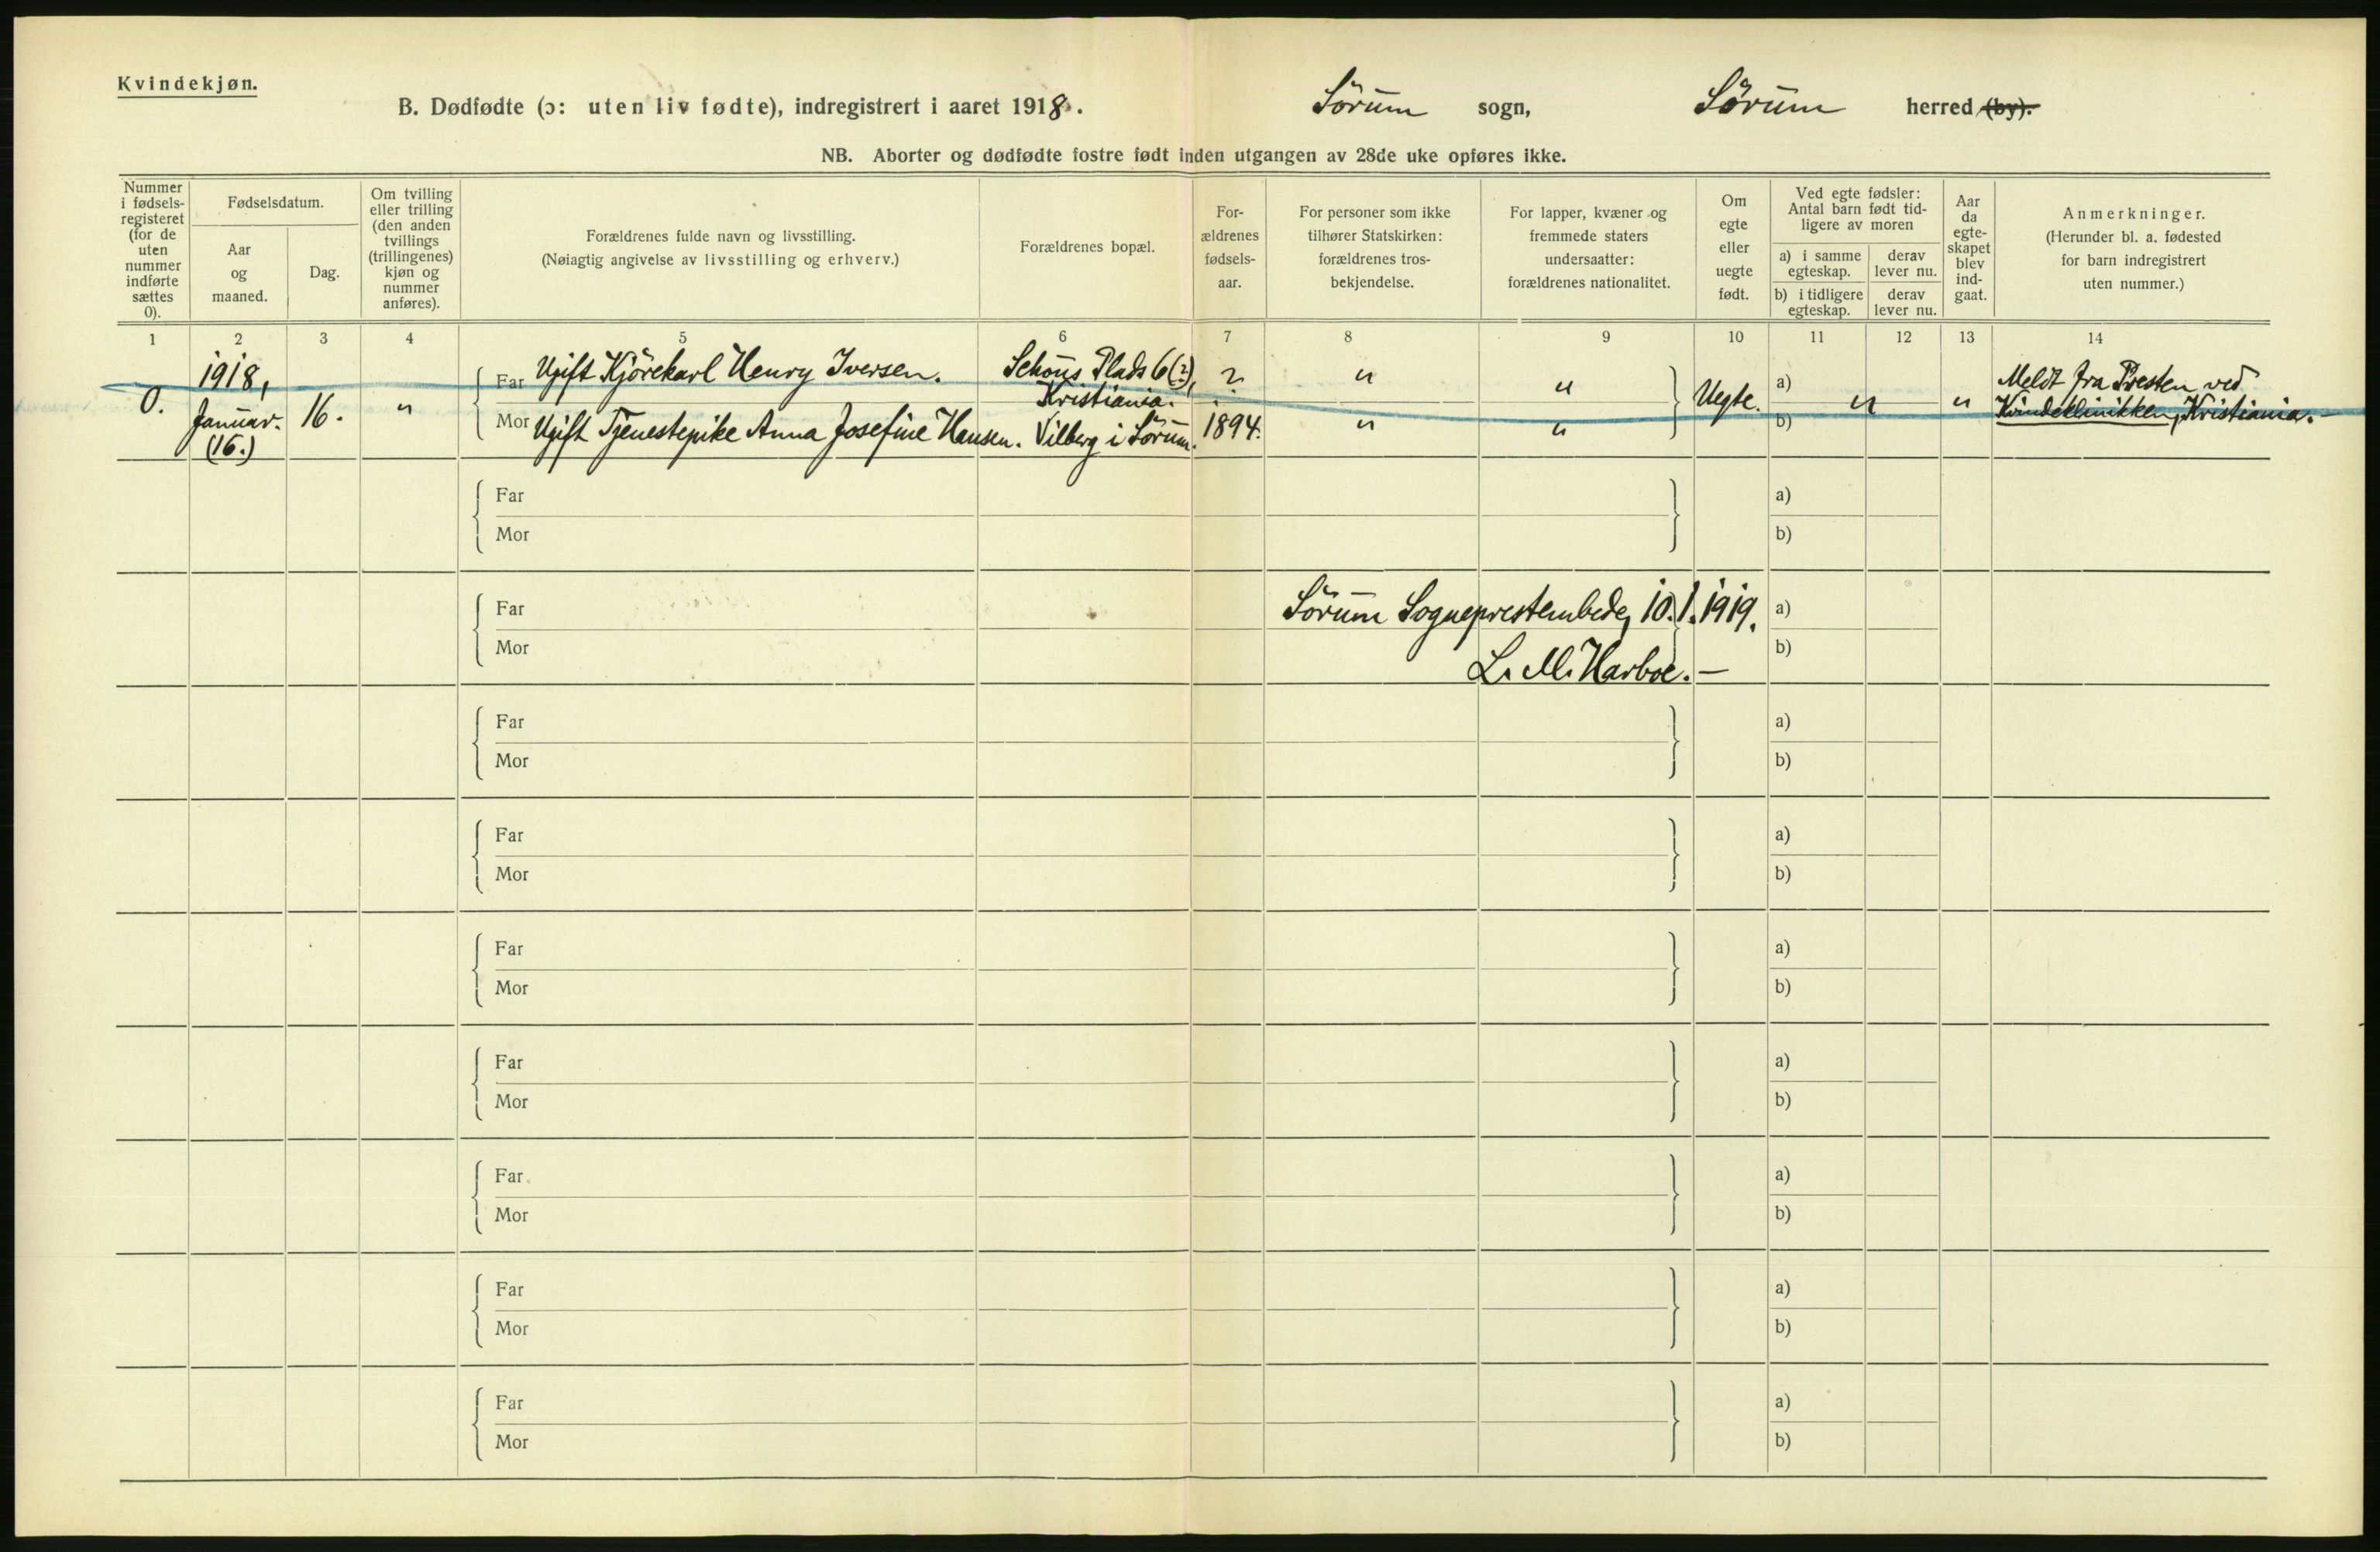 Kvindekjøn.
B. Dødfødte (ɔ: uten liv fødte), indregistrert i aaret 1918. Sörum sogn, Sörum herred (by).
NB. Aborter og dødfødte fostre født inden utgangen av 28de uke opføres ikke.
Nummer
i fødsels-
registeret
(for de
uten
nummer
indførte
sættes
0).
Fødselsdatum.
Aar
og
maaned.
Dag.
Om tvilling
eller trilling
(den anden
tvillings
(trillingenes)
kjøn og
nummer
anføres).
Forældrenes fulde navn og livsstilling.
(Nøiagtig angivelse av livsstilling og erhverv.)
Forældrenes bopæl.
For-
ældrenes
fødsels-
aar.
For personer som ikke
tilhører Statskirken:
forældrenes tros-
bekjendelse.
For lapper, kvæner og
fremmede staters
undersaatter:
forældrenes nationalitet.
Om
egte
eller
uegte
født.
Ved egte fødsler:
Antal barn født tid-
ligere av moren
a) i samme
egteskap.
derav
lever nu.
b) i tidligere
egteskap.
derav
lever nu.
Aar
da
egte-
skapet
blev
ind-
gaat.
Anmerkninger.
(Herunder bl. a. fødested
for barn indregistrert
uten nummer.)
1 2 3 4 5 6 7 8 9 10 11 12 13 14
0.
1918,
Januar.
(16.)
16.
"
Far Ugift Kjörekarl Henry Iversen.
Schous Plads 6 (?),
Kristiania.
?
"
"
Mor Ugift Tjenestepike Anna Josefine Hansen. Vilberg i Sörum. 1894. " "
Uegte.
a)
b)
"
"
Meldt fra Presten ved
Kvindeklinikken, Kristiania.-
Far a)
Mor b)
Far Sörum Sogneprestembede, 10.1.1919. a)
Mor b)
L. M. Harboe.-
Far a)
Mor b)
Far a)
Mor b)
Far a)
Mor b)
Far a)
Mor b)
Far a)
Mor b)
Far a)
Mor b)
Far a)
Mor b)